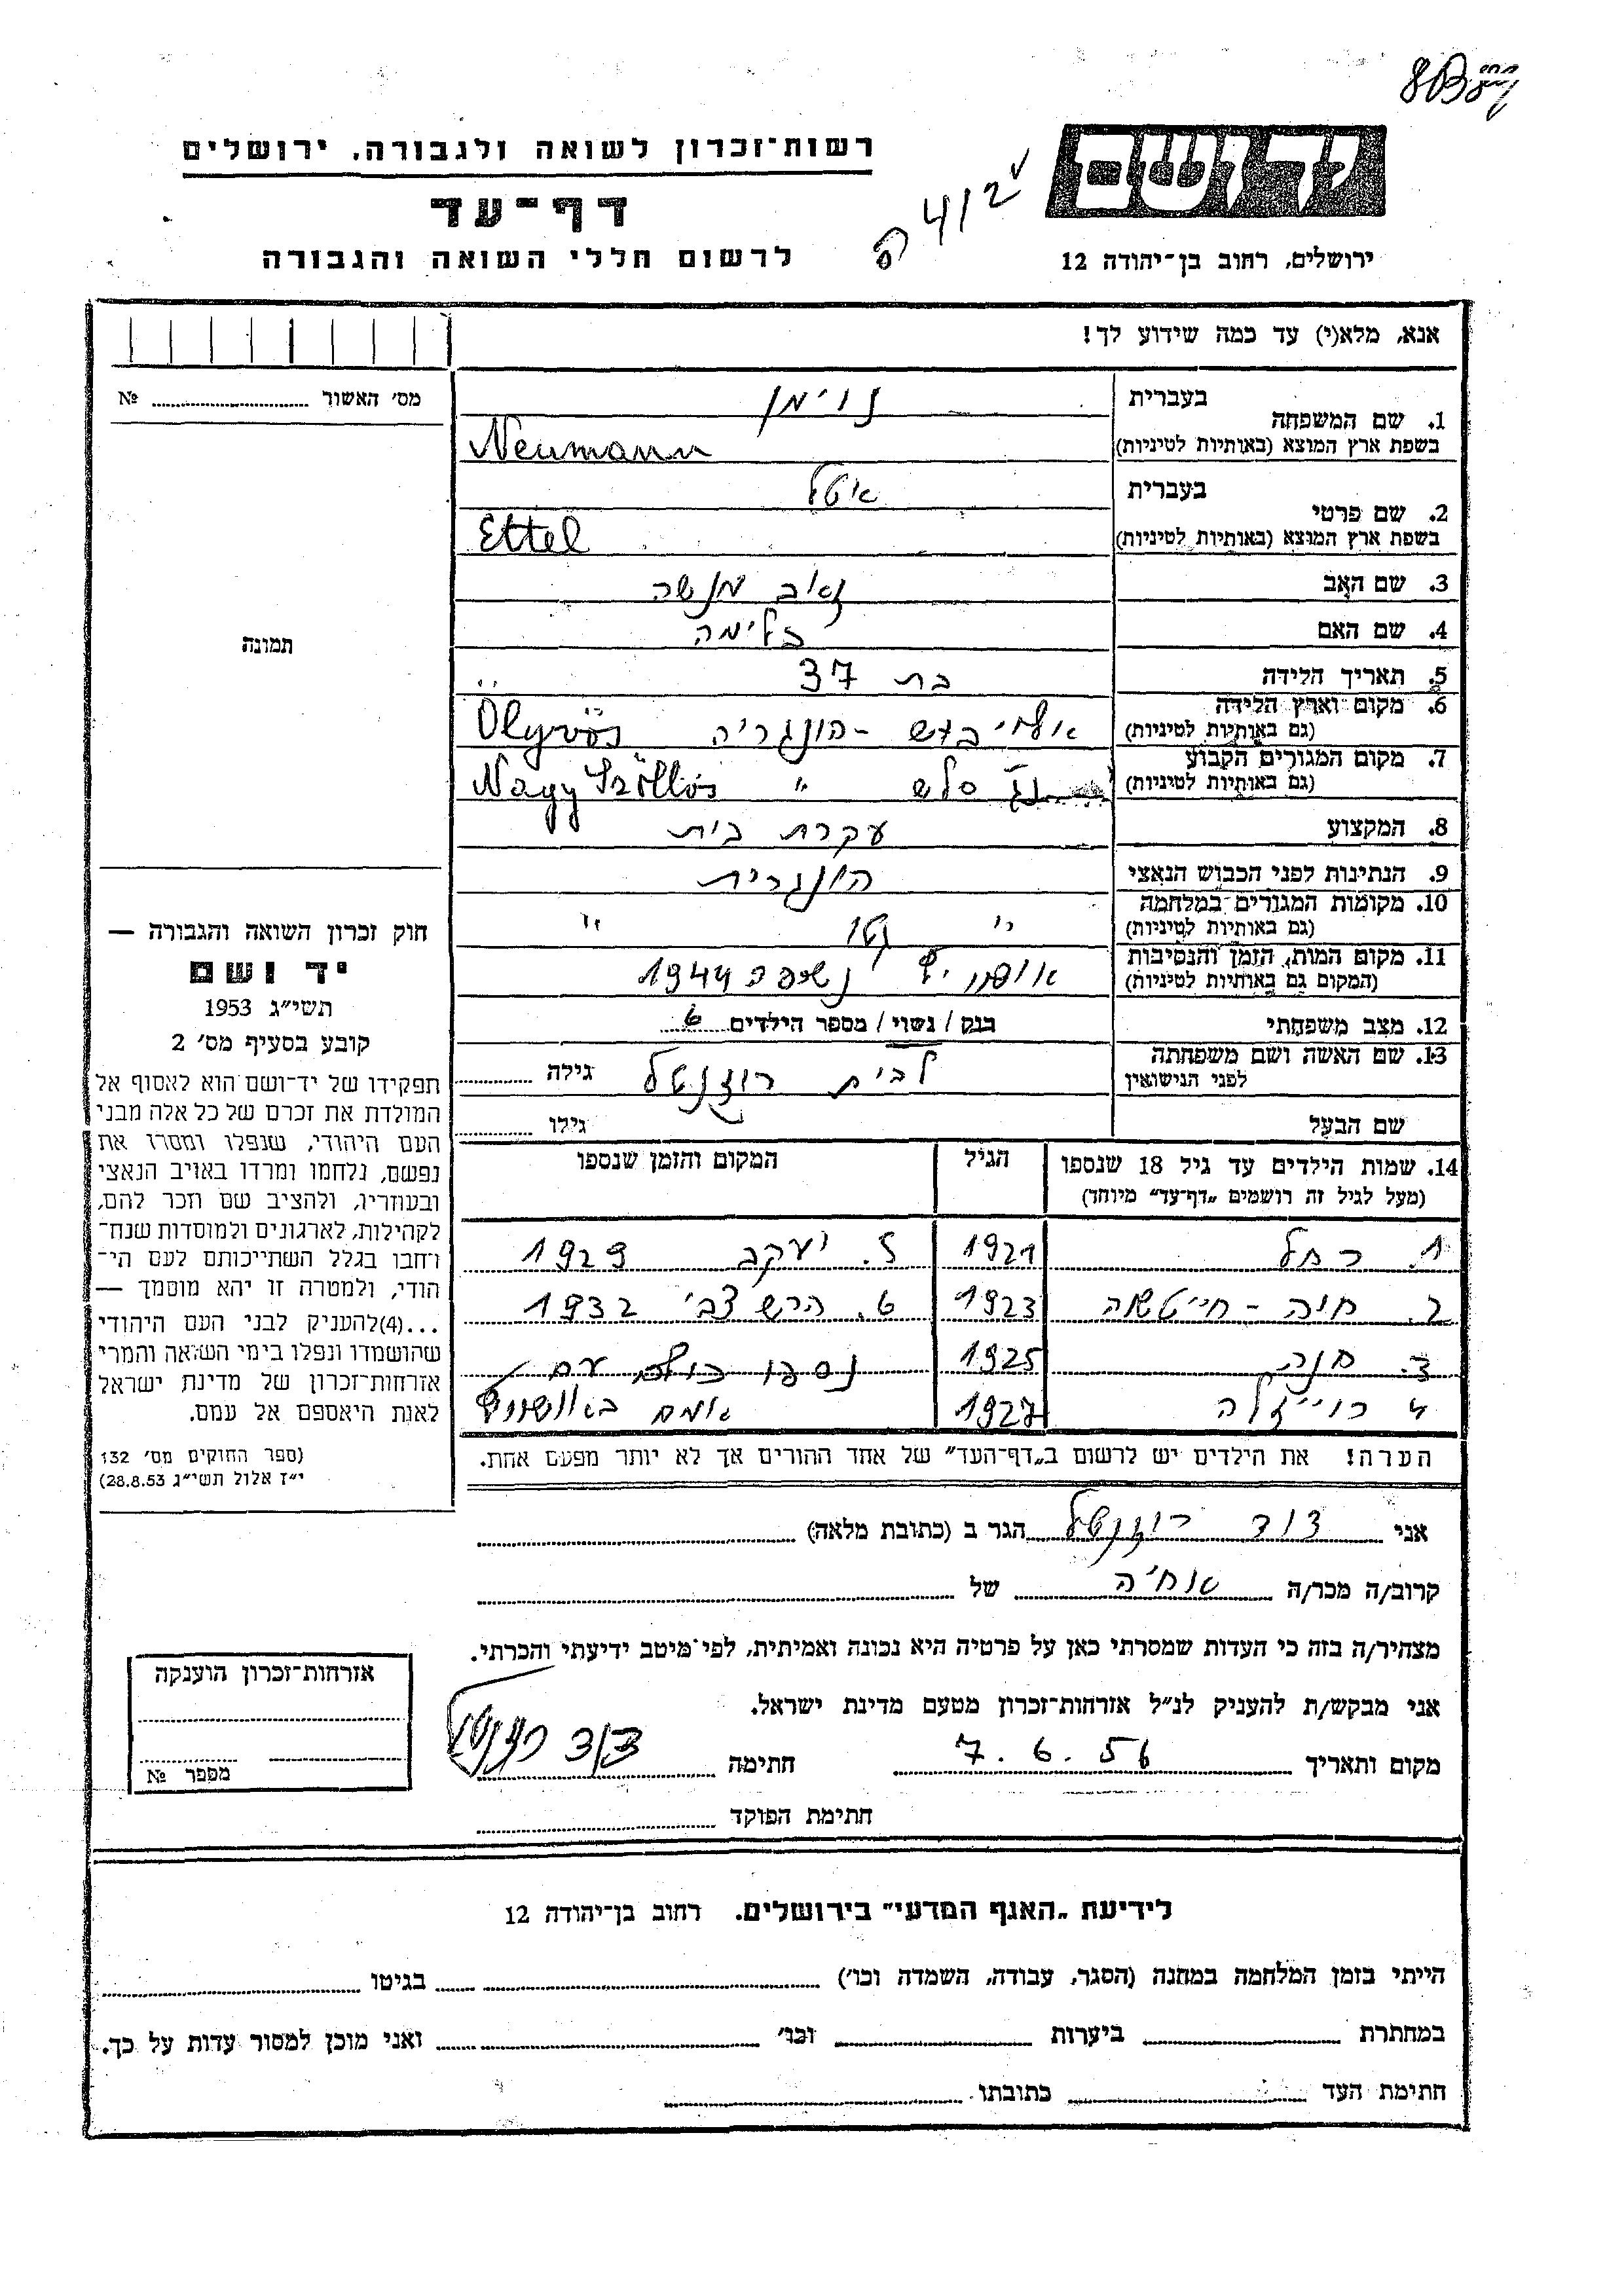 רשות־זכרון לשואה ולגבורה, ירושלים
דף־עד
לרשום חללי השואה והגבורה
412
יד ושם
ירושלים, רחוב בן־יהודה 12
אנא, מלא(י) עד כמה שידוע לך!
מס׳ האשור № 
1. שם המשפחה
בעברית נוימן
בשפת ארץ המוצא (באותיות לטיניות) Neumann
2. שם פרטי
בעברית איטל
בשפת ארץ המוצא (באותיות לטיניות) Ettel
3. שם האב זאב מנשה
4. שם האם בלימה
5. תאריך הלידה בת 37
6. מקום וארץ הלידה
(גם באותיות לטיניות) הונגריה Ölyvös
7. מקום המגורים הקבוע
(גם באותיות לטיניות) נג׳ סלש " Nagy Szöllös
8. המקצוע עקרת בית
9. הנתינות לפני הכבוש הנאצי הונגרית
10. מקומות המגורים במלחמה
(גם באותיות לטיניות) " גטו "
11. מקום המות, הזמן והנסיבות
(המקום גם באותיות לטיניות) אושויץ נשרפה 1944
12. מצב משפחתי רנק / נשוי / מספר הילדים 6
13. שם האשה ושם משפחתה
לפני הנישואין לבית רוזנטל גילה
שם הבעל גילו
14. שמות הילדים עד גיל 18 שנספו הגיל המקום והזמן שנספו
(מעל לגיל זה רושמים „דף־עד" מיוחד)
1. רחל 1921 5. יעקב 1929
2. חיה - 1923 6. הרש צבי 1932
3. חנה 1925 נספו כולם עם
4 רייזלה 1927 אמם באושויץ
הערה! את הילדים יש לרשום ב„דף־העד" של אחד ההורים אך לא יותר מפעם אחת.
תמונה
חוק זכרון השואה והגבורה —
יד ושם
תשי״ג 1953
קובע בסעיף מס׳ 2
תפקידו של יד־ושם הוא לאסוף אל
המולדת את זכרם של כל אלה מבני
העם היהודי, שנפלו ומסרו את
נפשם, נלחמו ומרדו באויב הנאצי
ובעוזריו, ולהציב שם וזכר להם,
לקהילות, לארגונים ולמוסדות שנח־
רבו בגלל השתייכותם לעם הי־
הודי, ולמטרה זו יהא מוסמך —
...(4)להעניק לבני העם היהודי
שהושמדו ונפלו בימי השואה והמרי
אזרחות־זכרון של מדינת ישראל
לאות היאספם אל עמם.
(ספר החוקים מס׳ 132
י״ז אלול תשי״ג 28.8.53)
אני דוד רוזנטל הגר ב (כתובת מלאה)
קרוב/ה מכר/ה אחיה של
מצהיר/ה בזה כי העדות שמסרתי כאן על פרטיה היא נכונה ואמיתית, לפי מיטב ידיעתי והכרתי.
אני מבקש/ת להעניק לנ״ל אזרחות־זכרון מטעם מדינת ישראל.
מקום ותאריך 7.6.56 חתימה דוד רוזנטל
חתימת הפוקד
אזרחות־זכרון הוענקה
מספר №
לידיעת „האגף המדעי" בירושלים. רחוב בן־יהודה 12
הייתי בזמן המלחמה במחנה (הסגר, עבודה, השמדה וכו׳) בגיטו
במחתרת ביערות וכו׳ ואני מוכן למסור עדות על כך.
חתימת העד כתובתו